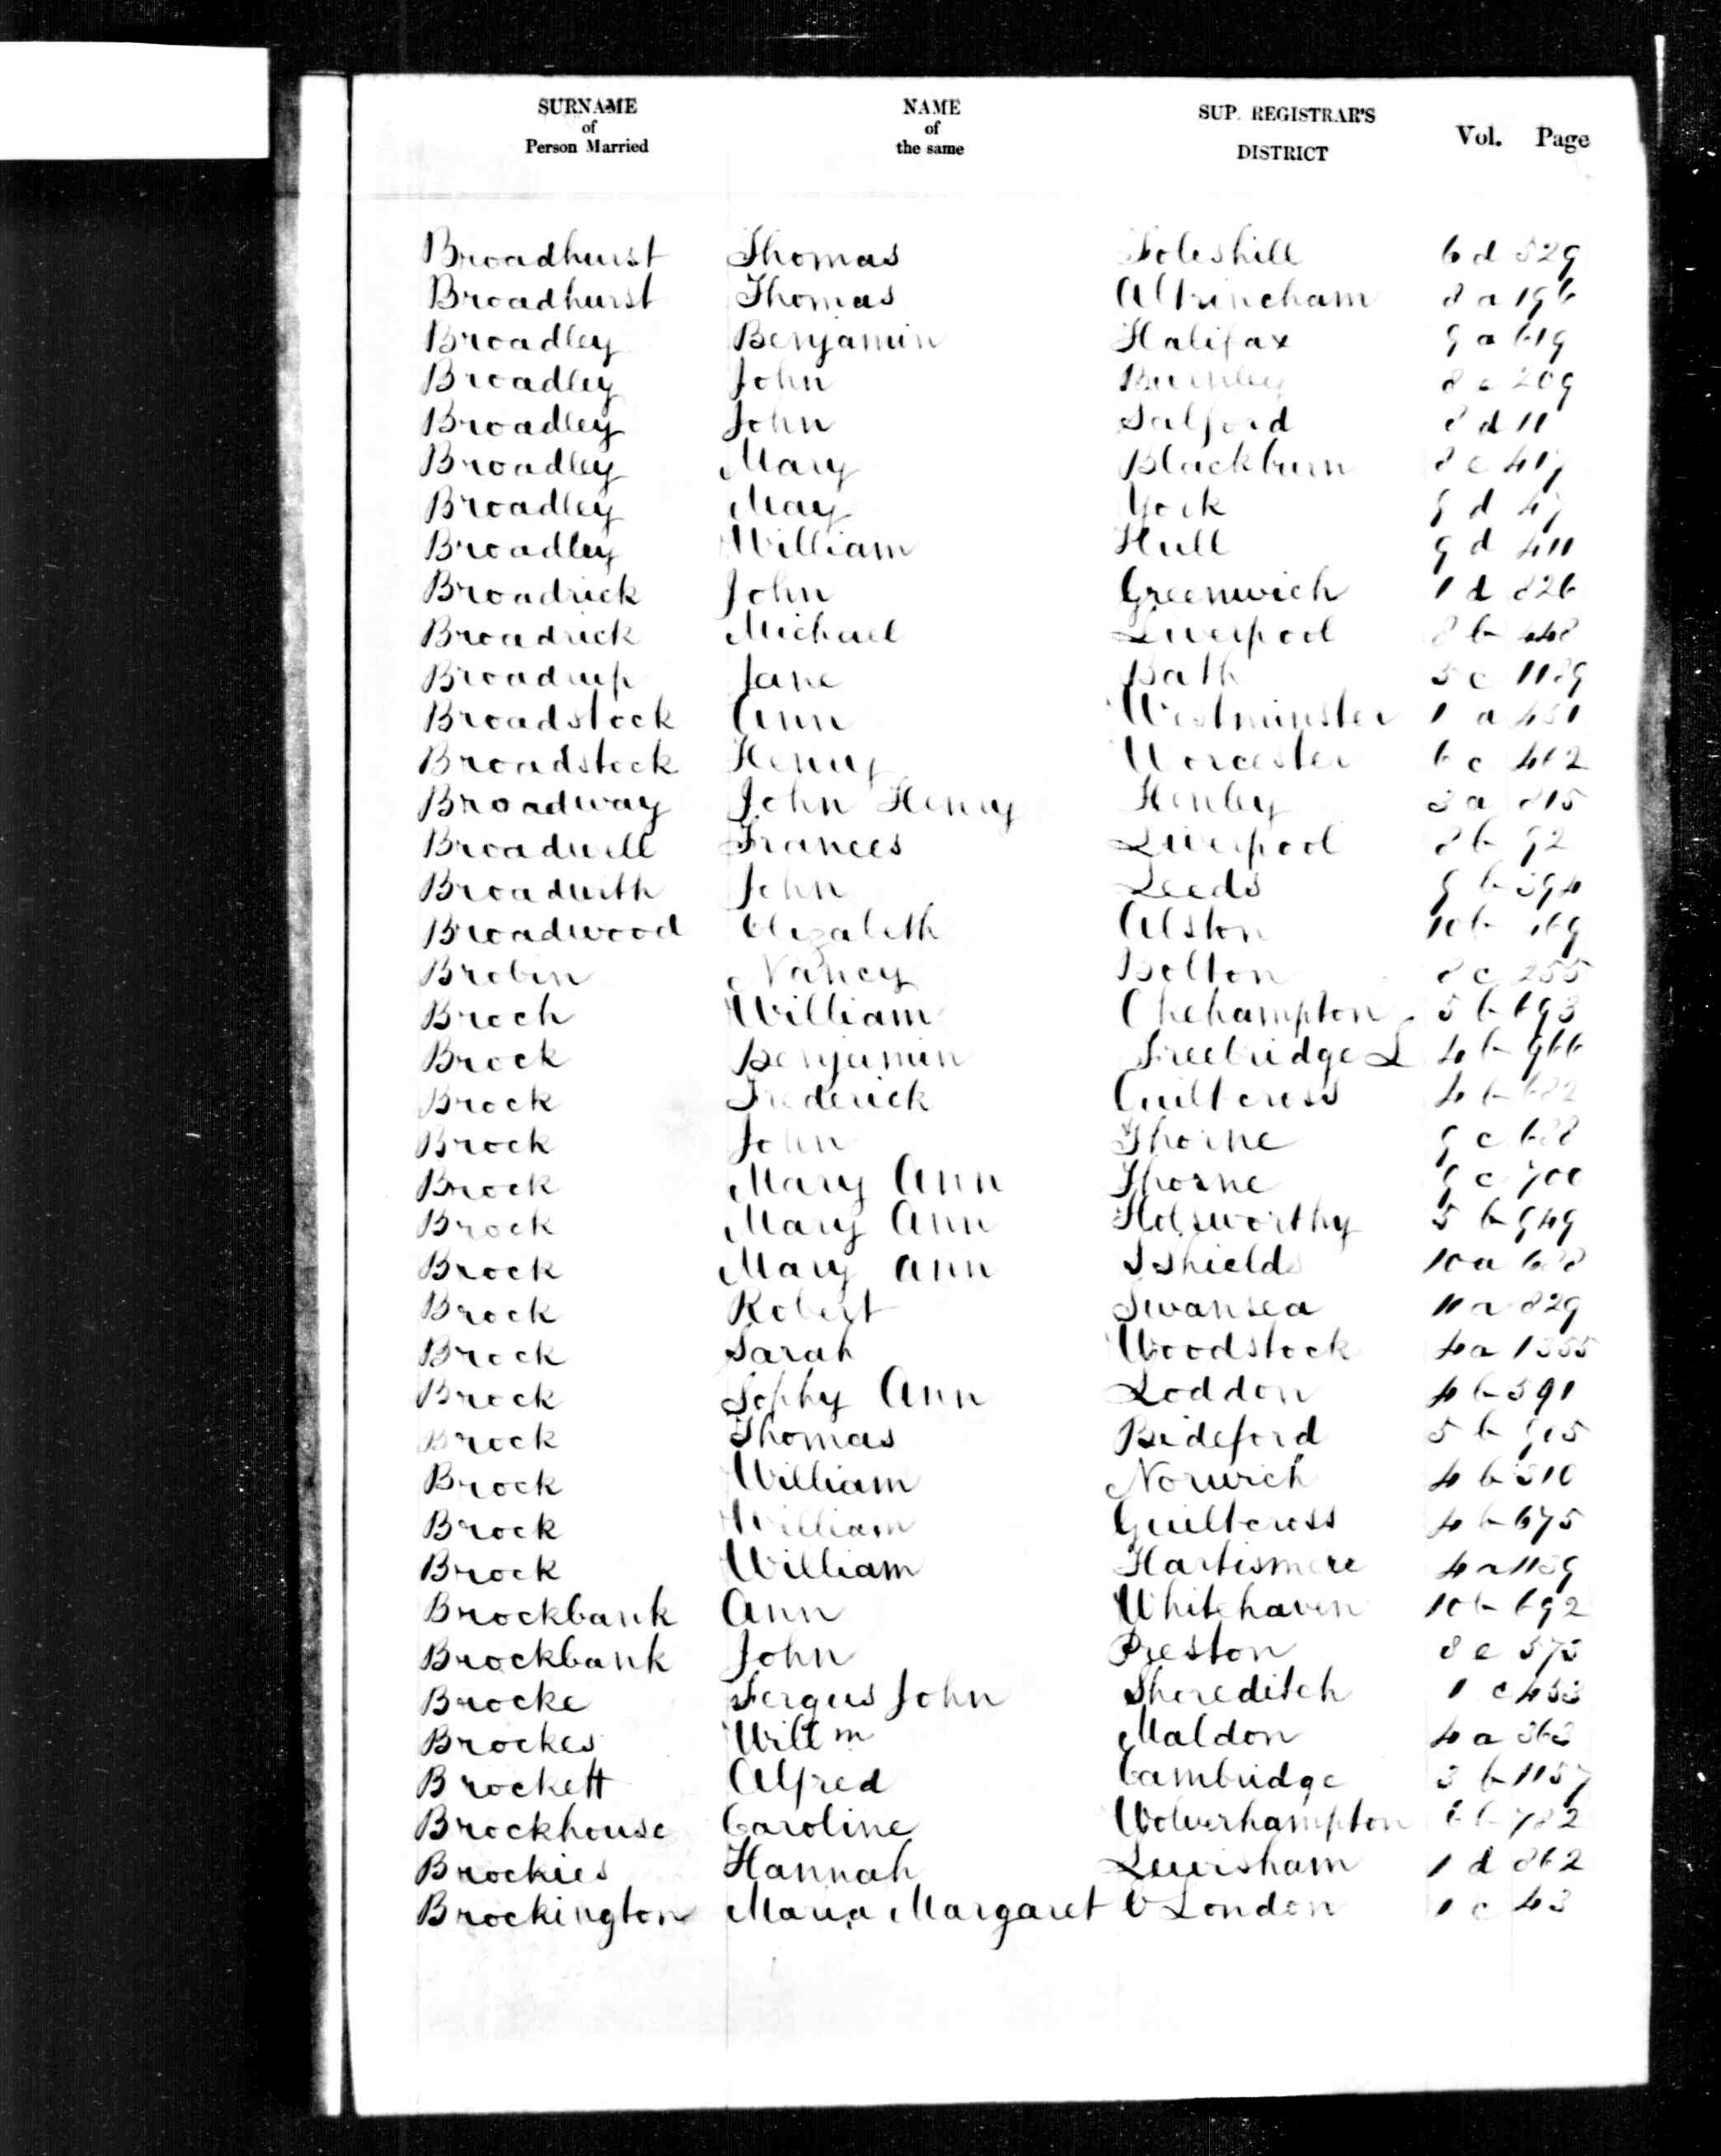 SURNAME of Person Married NAME of the same SUP. REGISTRAR'S DISTRICT Vol. Page
Broadhurst Thomas Foleshill 6 d 529
Broadhurst Thomas Altrincham 8 a 196
Broadley Benjamin Halifax 9 a 619
Broadley John Burnley 8 e 209
Broadley John Salford 8 d 11
Broadley Mary Blackburn 8 e 417
Broadley May York 9 d 47
Broadley William Hull 9 d 411
Broadrick John Greenwich 1 d 826
Broadrick Michael Liverpool 8 b 448
Broadrup Jane Bath 5 c 1189
Broadstock Ann Westminster 1 a 451
Broadstock Henry Worcester 6 c 412
Broadway John Henry Henley 3 a 815
Broadwell Frances Liverpool 8 b 92
Broadwith John Leeds 9 b 394
Broadwood Elizabeth Alston 10 b
Brobin Nancy Bolton 8 c 255
Broch William Okehampton 5 b 693
Brock Benjamin Freebridge L 4 b 966
Brock Frederick Guiltcross 4 b 682
Brock John Thorne 9 c 688
Brock Mary Ann Thorne 9 c 700
Brock Mary Ann Holsworthy 5 b 949
Brock Mary Ann S Shields 10 a 688
Brock Robert Swansea 11 a 829
Brock Sarah Woodstock 4 a 1355
Brock Sophy Ann Loddon 4 b 591
Brock Thomas Bideford 5 b 915
Brock William Norwich 4 b 310
Brock William Guiltcross 4 b 675
Brock William Hartismere 4 a 1159
Brockbank Ann Whitehaven 10 b 692
Brockbank John Preston 8 e 575
Brocke Fergus John Shoreditch 1 c 453
Brockes Willm Maldon 4 a 363
Brockett Alfred Cambridge 3 b 1157
Brockhouse Caroline Wolverhampton 6 b 782
Brockies Hannah Lewisham 1 d 862
Brockington Maria Margaret E London 1 c 43